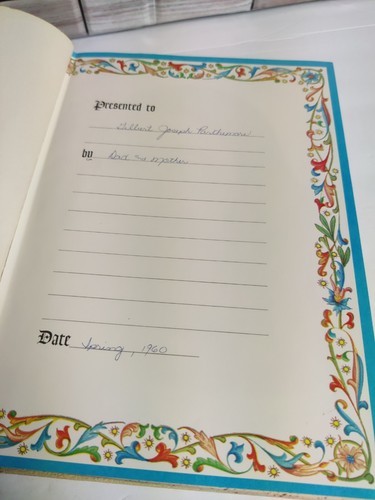 Presented to
Gilbert Joseph
by Dad and Mother
Date Spring, 1960